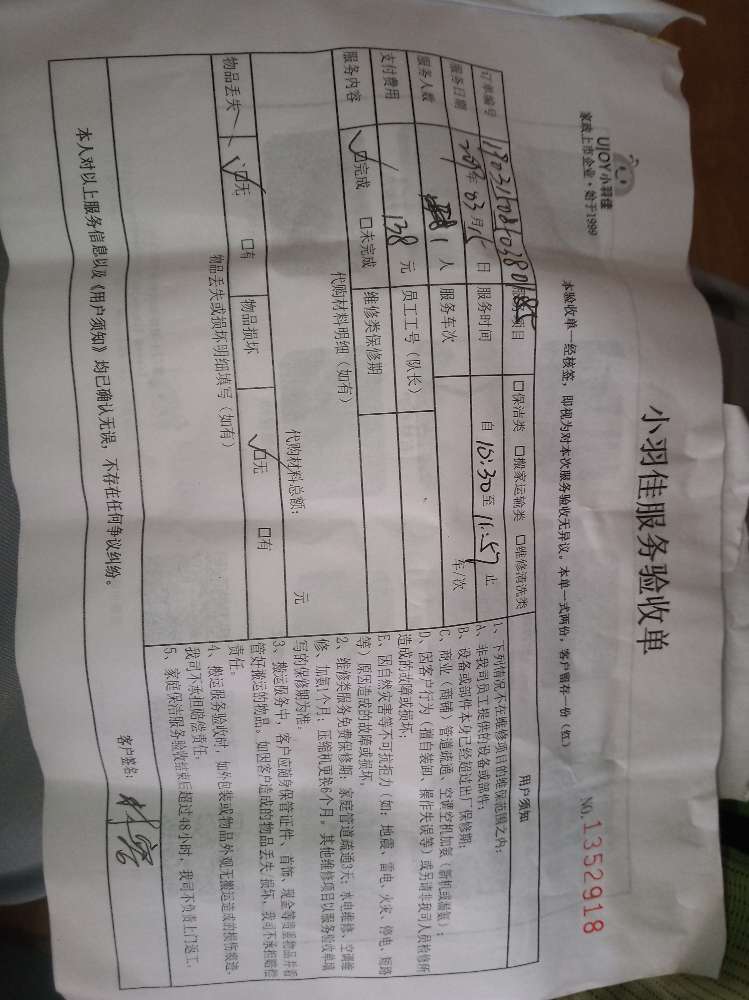 UJOY小羽佳
家政上市企业·始于1999
小羽佳服务验收单
NO.1352918
本验收单一经核签，即视为对本次服务验收无异议。本单一式两份，客户留存一份（红）
订单编号 服务项目 □保洁类 □搬家运输类 □维修清洗类
服务日期 年03月15日 服务时间 自10:30至11:57止
服务人数 1人 服务车次 车/次
支付费用 138元 员工工号（队长）
服务内容 ☑完成 □未完成 维修类保修期
代购材料明细（如有）
代购材料总额： 元
物品丢失 ☑无 □有 物品损坏 ☑无 □有
物品丢失或损坏明细填写（如有）
用户须知
1、下列情况不在维修项目的维保范围之内：
A、非我司员工提供的设备或部件；
B、设备或部件本身已经超过出厂保修期；
C、商业（商铺）管道疏通、空调空机加氨（新机或漏氨）；
D、因客户行为（擅自装卸、操作失误等）或另请非我司人员检修所
造成的故障或损坏；
E、因自然灾害等不可抗拒力（如：地震、雷电、火灾、停电、短路
等）原因造成的故障或损坏。
2、维修类服务免费保修期：家庭管道疏通3天；水电维修、空调维
修、加氨1个月；压缩机更换6个月。其他维修项目以服务验收单填
写的保修期为准。
3、搬运服务中，客户应随身保管证件、首饰、现金等贵重物品并看
管好搬运的物品。如因客户造成的物品丢失/损坏，我司不承担赔偿
责任。
4、搬运服务验收时，如外包装或物品外观无搬运造成的损伤痕迹，
我司不承担赔偿责任。
5、家庭保洁服务验收结束后超过48小时，我司不负责上门返工。
本人对以上服务信息以及《用户须知》均已确认无误，不存在任何争议纠纷。
客户签名：